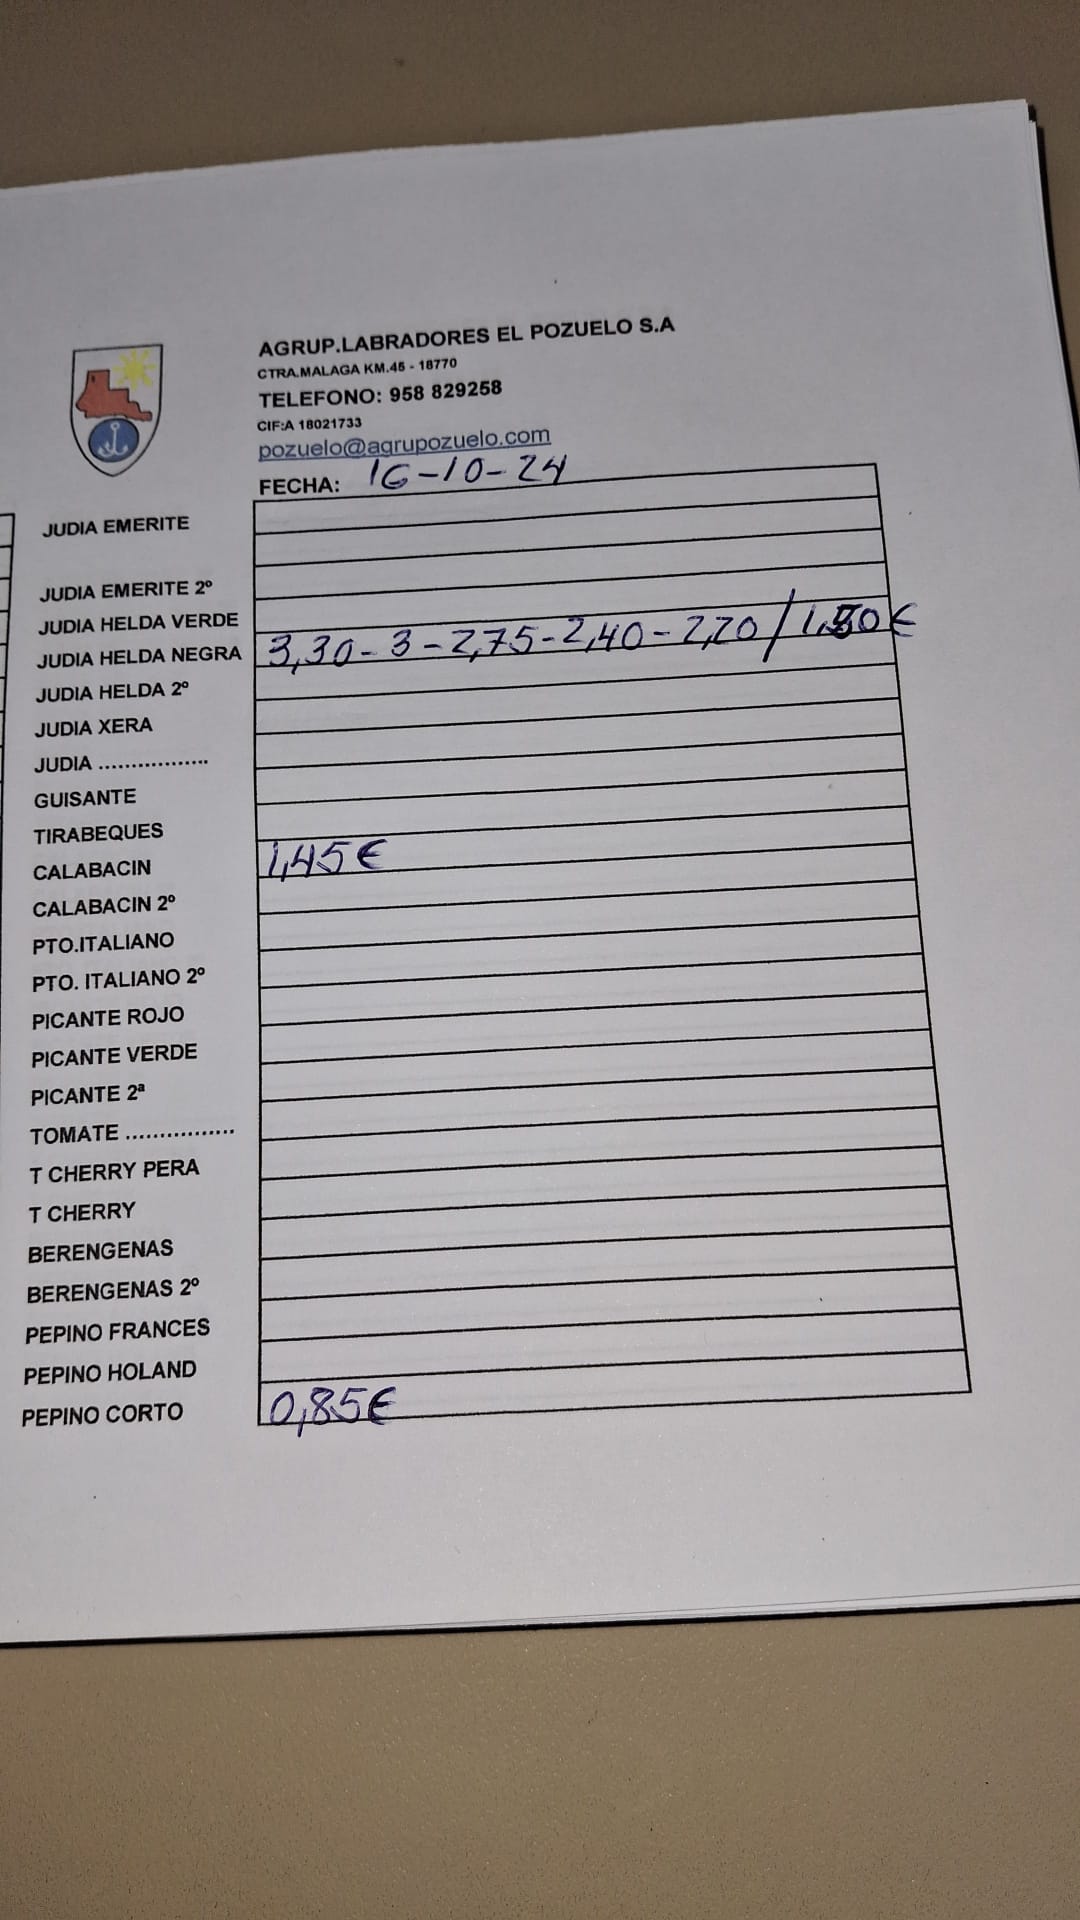 AGRUP.LABRADORES EL POZUELO S.A
CTRA.MALAGA KM.45 - 18770
TELEFONO: 958 829258
CIF:A 18021733
pozuelo@agrupozuelo.com
FECHA: 16-10-24
JUDIA EMERITE
JUDIA EMERITE 2º
JUDIA HELDA VERDE
JUDIA HELDA NEGRA 3,30-3-2,75-2,40-2,20/1,50€
JUDIA HELDA 2º
JUDIA XERA
JUDIA .................
GUISANTE
TIRABEQUES
CALABACIN 1,45€
CALABACIN 2º
PTO.ITALIANO
PTO. ITALIANO 2º
PICANTE ROJO
PICANTE VERDE
PICANTE 2ª
TOMATE ................
T CHERRY PERA
T CHERRY
BERENGENAS
BERENGENAS 2º
PEPINO FRANCES
PEPINO HOLAND
PEPINO CORTO 0,85€